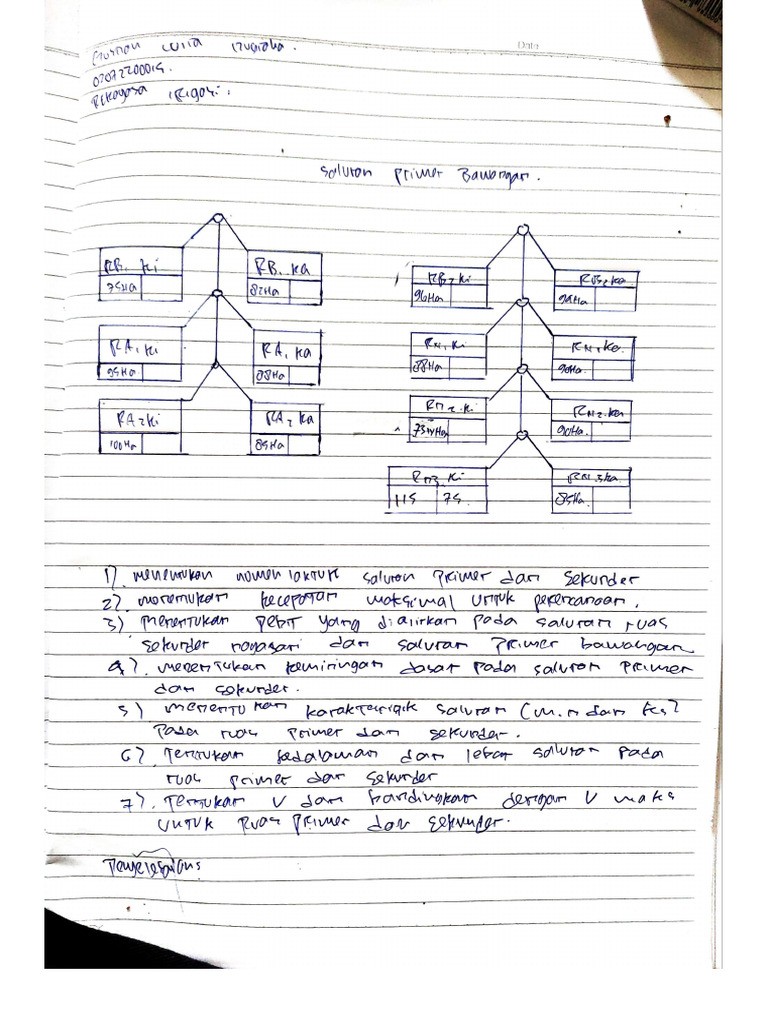 Date
02072200015.
Rekayasa irigasi.
Saluran Primer Bawangan.
RB1 ki
RB1 ka
75Ha
82Ha
RA1 ki
RA1 ka
95Ha
88Ha
RA2 ki
RA2 ka
100Ha
85Ha
RB2 ki
RB2 ka
96Ha
RN1 ki
RN1 ka
88Ha
90Ha
RN2 ki
RN2 ka
90Ha
RN3 ki
RN3 ka
115 75
85Ha
1). menentukan nomenklaktur saluran primer dan sekunder
2). menentukan kecepatan maksimal untuk perencanaan.
3) menentukan debit yang dialirkan pada saluran ruas
sekunder nagasari dan saluran primer bawangan
4). menentukan kemiringan dasar pada saluran primer
dan sekunder.
5) menentukan karakteristik saluran (m.n dan ks)
pada ruas primer dan sekunder.
6). Tentukan kedalaman dan lebar saluran pada
ruas primer dan sekunder
7). Tentukan V dan bandingkan dengan V maks
untuk ruas primer dan sekunder.